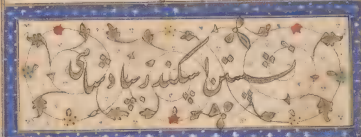 نشستن اسکندر بپادشاهی